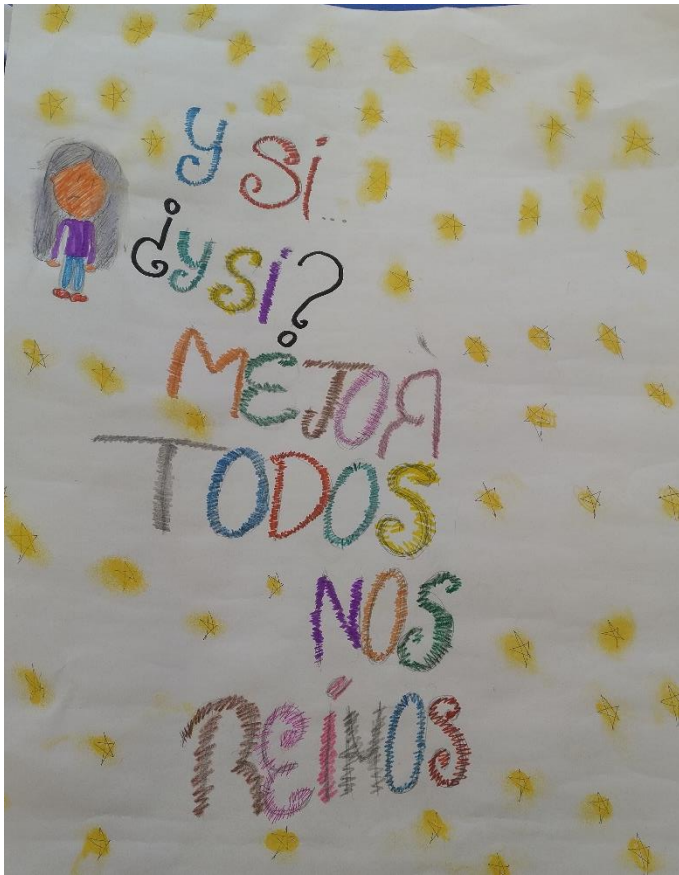 y si...
¿ysi?
MEJOR
TODOS
NOS
REÍMOS